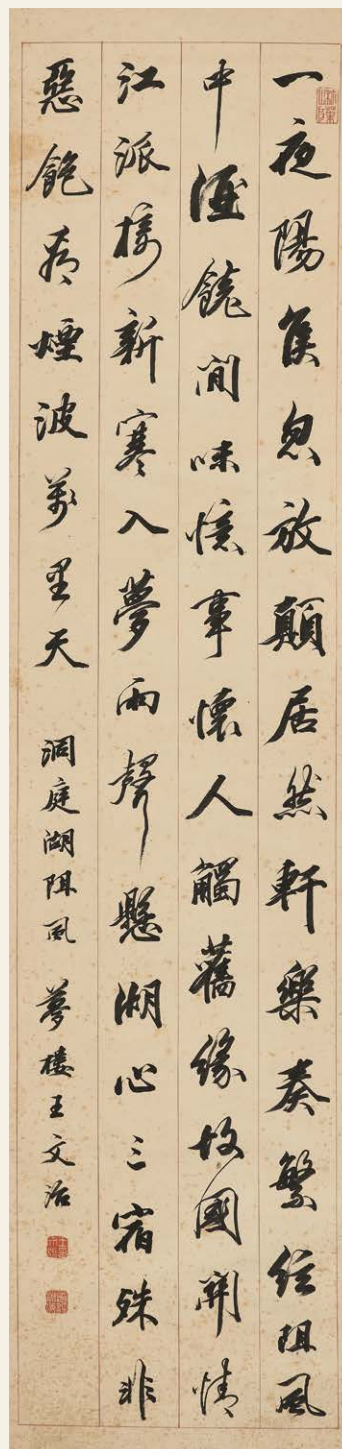 一夜陽侯忽放顛居然軒樂奏繁絃阻風
中酒饒閒味憶事懷人觸舊緣故國關情
江派接新寒入夢雨聲懸湖心三宿殊非
惡飽看煙波萬里天 洞庭湖阻風 夢樓王文治